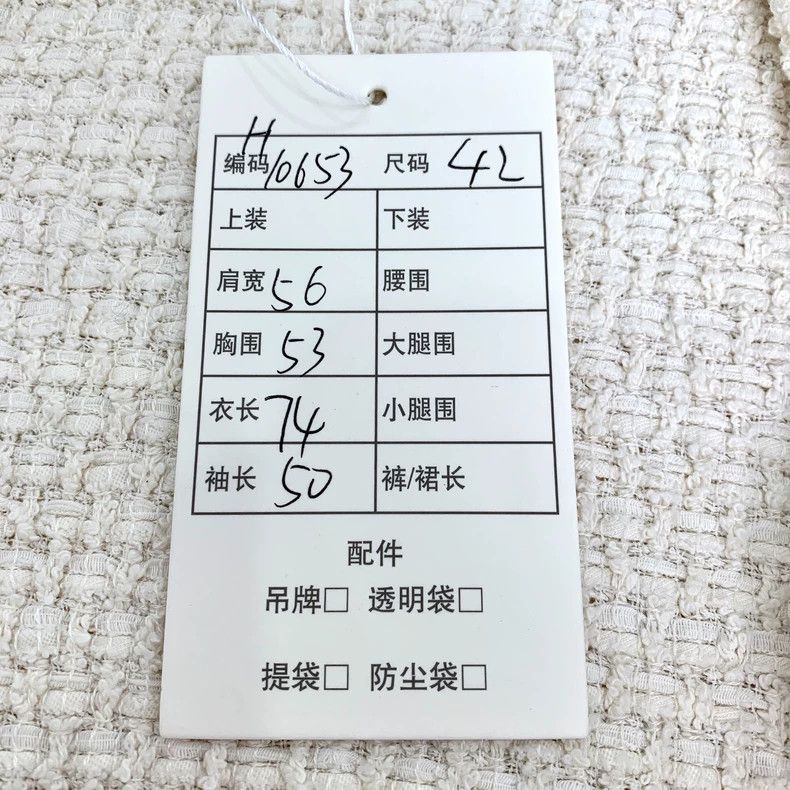 编码 H10653 尺码 42
上装 下装
肩宽 56 腰围
胸围 53 大腿围
衣长 74 小腿围
袖长 50 裤/裙长
配件
吊牌□ 透明袋□
提袋□ 防尘袋□